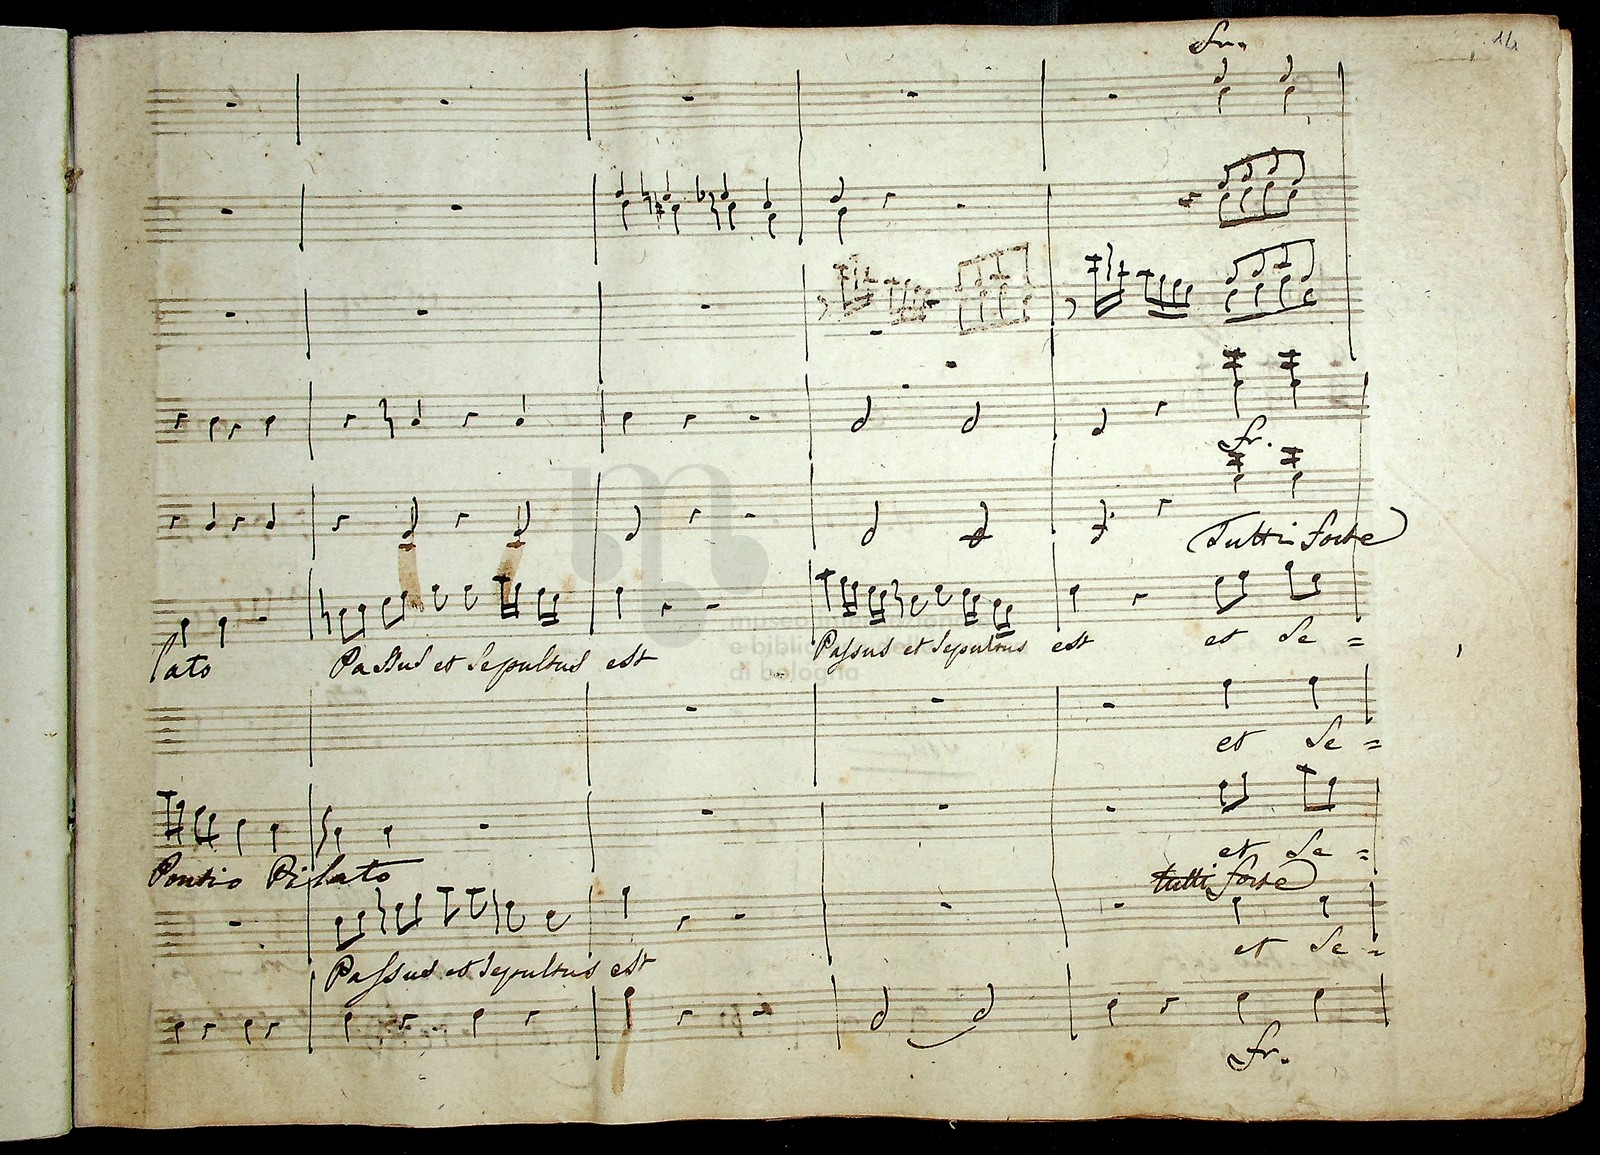 16
fr.
fr.
Tutti forte
lato Passus et sepultus est Passus et sepultus est et se =
museo
e biblio
di bologna
et se =
et se =
Pontio Pilato
tutti forte
et se =
Passus et sepultus est
fr.